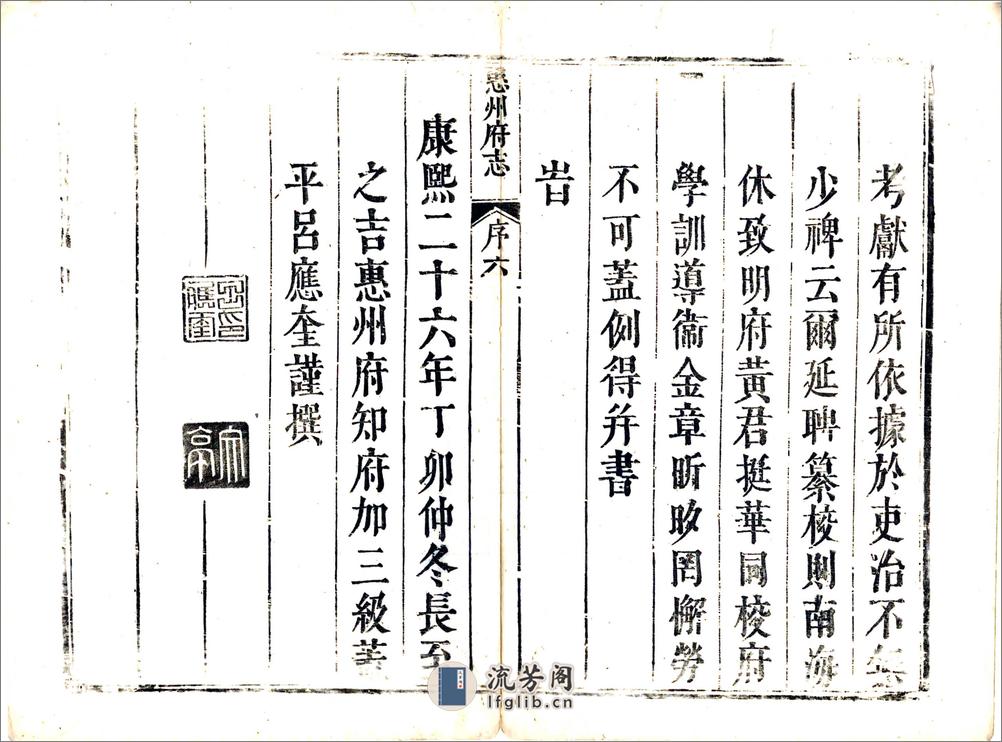 考獻有所依據於吏治不無
少裨云爾延聘纂梭則南海
休致明府黃君挺華同梭府
學訓導衞金章昕夕罔懈勞
不可蓋例得幷書
旹
惠州府志 序 六
康熙二十六年丁卯仲冬長至
之吉惠州府知府加三級
平呂應奎謹撰
呂應奎印
流芳阁
lfglib.cn